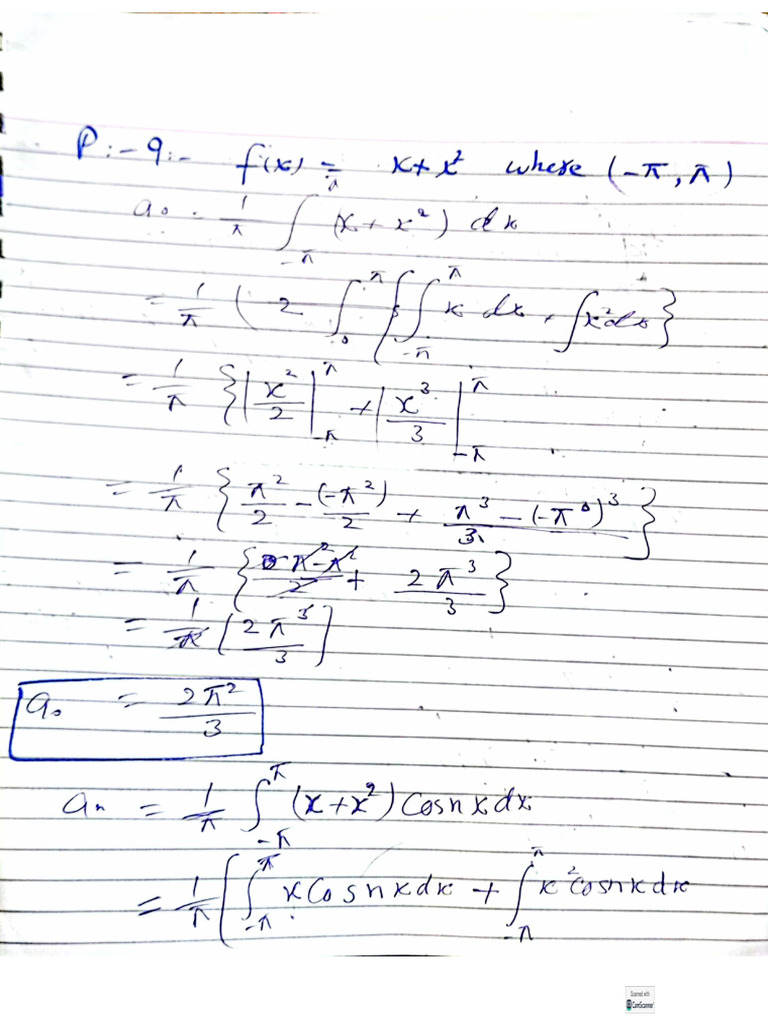 P:-9:- f(x) = x+x² where (-π, π)
a₀ = 1/π ∫_{-π}^{π} (x + x²) dx
= 1/π ( 2 ∫_{0}^{π} { ∫_{-π}^{π} x dx, ∫x²dx }
= 1/π { | x²/2 |_{-π}^{π} + | x³/3 |_{-π}^{π}
= 1/π { π²/2 - (-π²)/2 + π³ - (-π⁰)³/3 }
= 1/π { π²-π²/2 + 2π³/3 }
= 1/π [ 2π³/3 ]
a₀ = 2π²/3
aₙ = 1/π ∫_{-π}^{π} (x+x²) Cosnx dx
= 1/π [ ∫_{-π}^{π} x Cosnx dx + ∫_{-π}^{π} x² cosnx dx
Scanned with
CamScanner